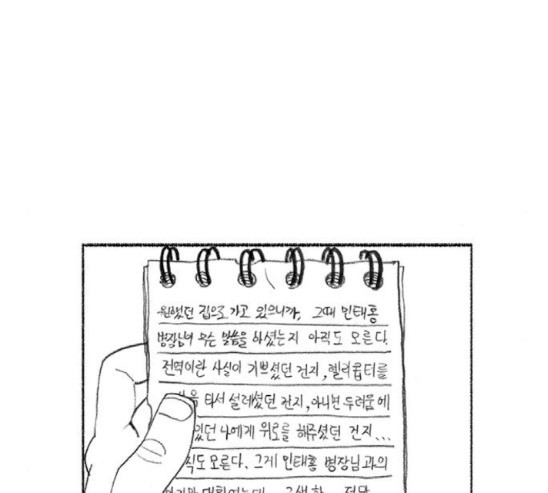 원했던 집으로 가고 있으니까, 그때 민태홍
병장님이 무슨 말씀을 하셨는지 아직도 모른다.
전역이란 사실이 기쁘셨던 건지, 헬리콥터를
타서 설레셨던 건지, 아니면 두려움에
있던 나에게 위로를 해주셨던 건지...
직도 모른다. 그게 민태홍 병장님과의